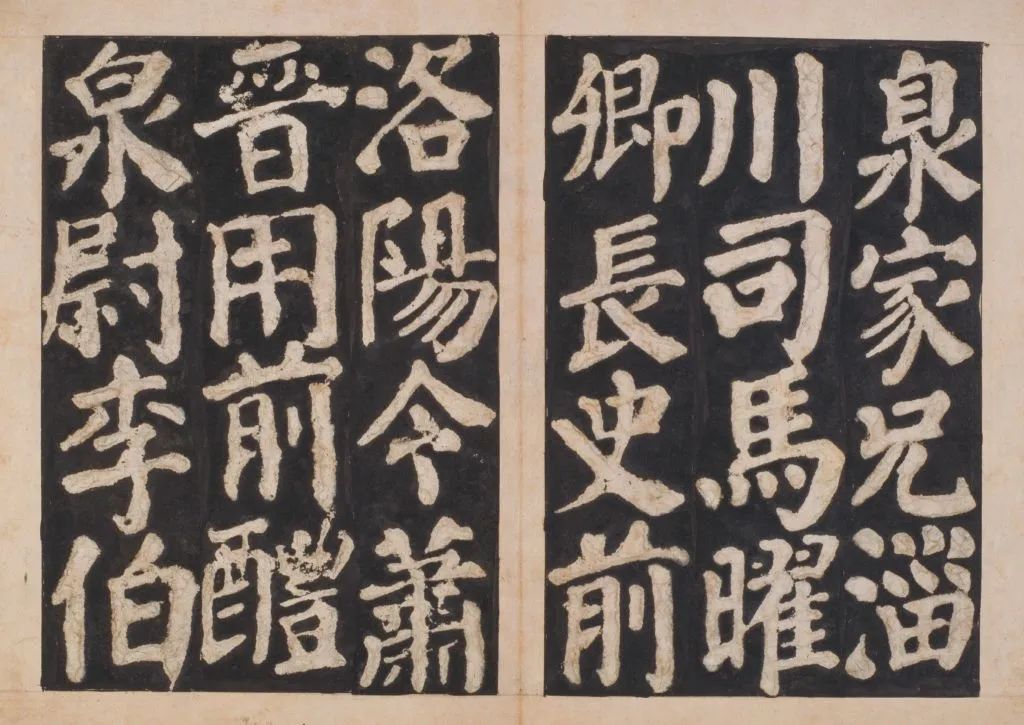 臮家兄淄
川司馬曜
卿長史前
洛陽令蕭
晉用前醴
泉尉李伯